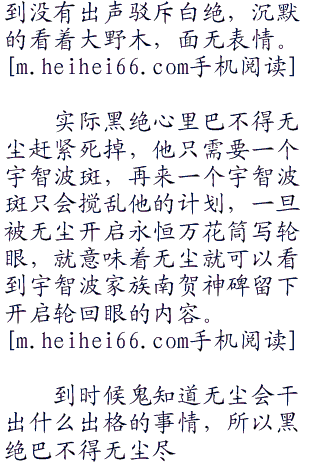 到没有出声驳斥白绝，沉默
的看着大野木，面无表情。
[m.heihei66.com手机阅读]
实际黑绝心里巴不得无
尘赶紧死掉，他只需要一个
宇智波斑，再来一个宇智波
斑只会搅乱他的计划，一旦
被无尘开启永恒万花筒写轮
眼，就意味着无尘就可以看
到宇智波家族南贺神碑留下
开启轮回眼的内容。
[m.heihei66.com手机阅读]
到时候鬼知道无尘会干
出什么出格的事情，所以黑
绝巴不得无尘尽